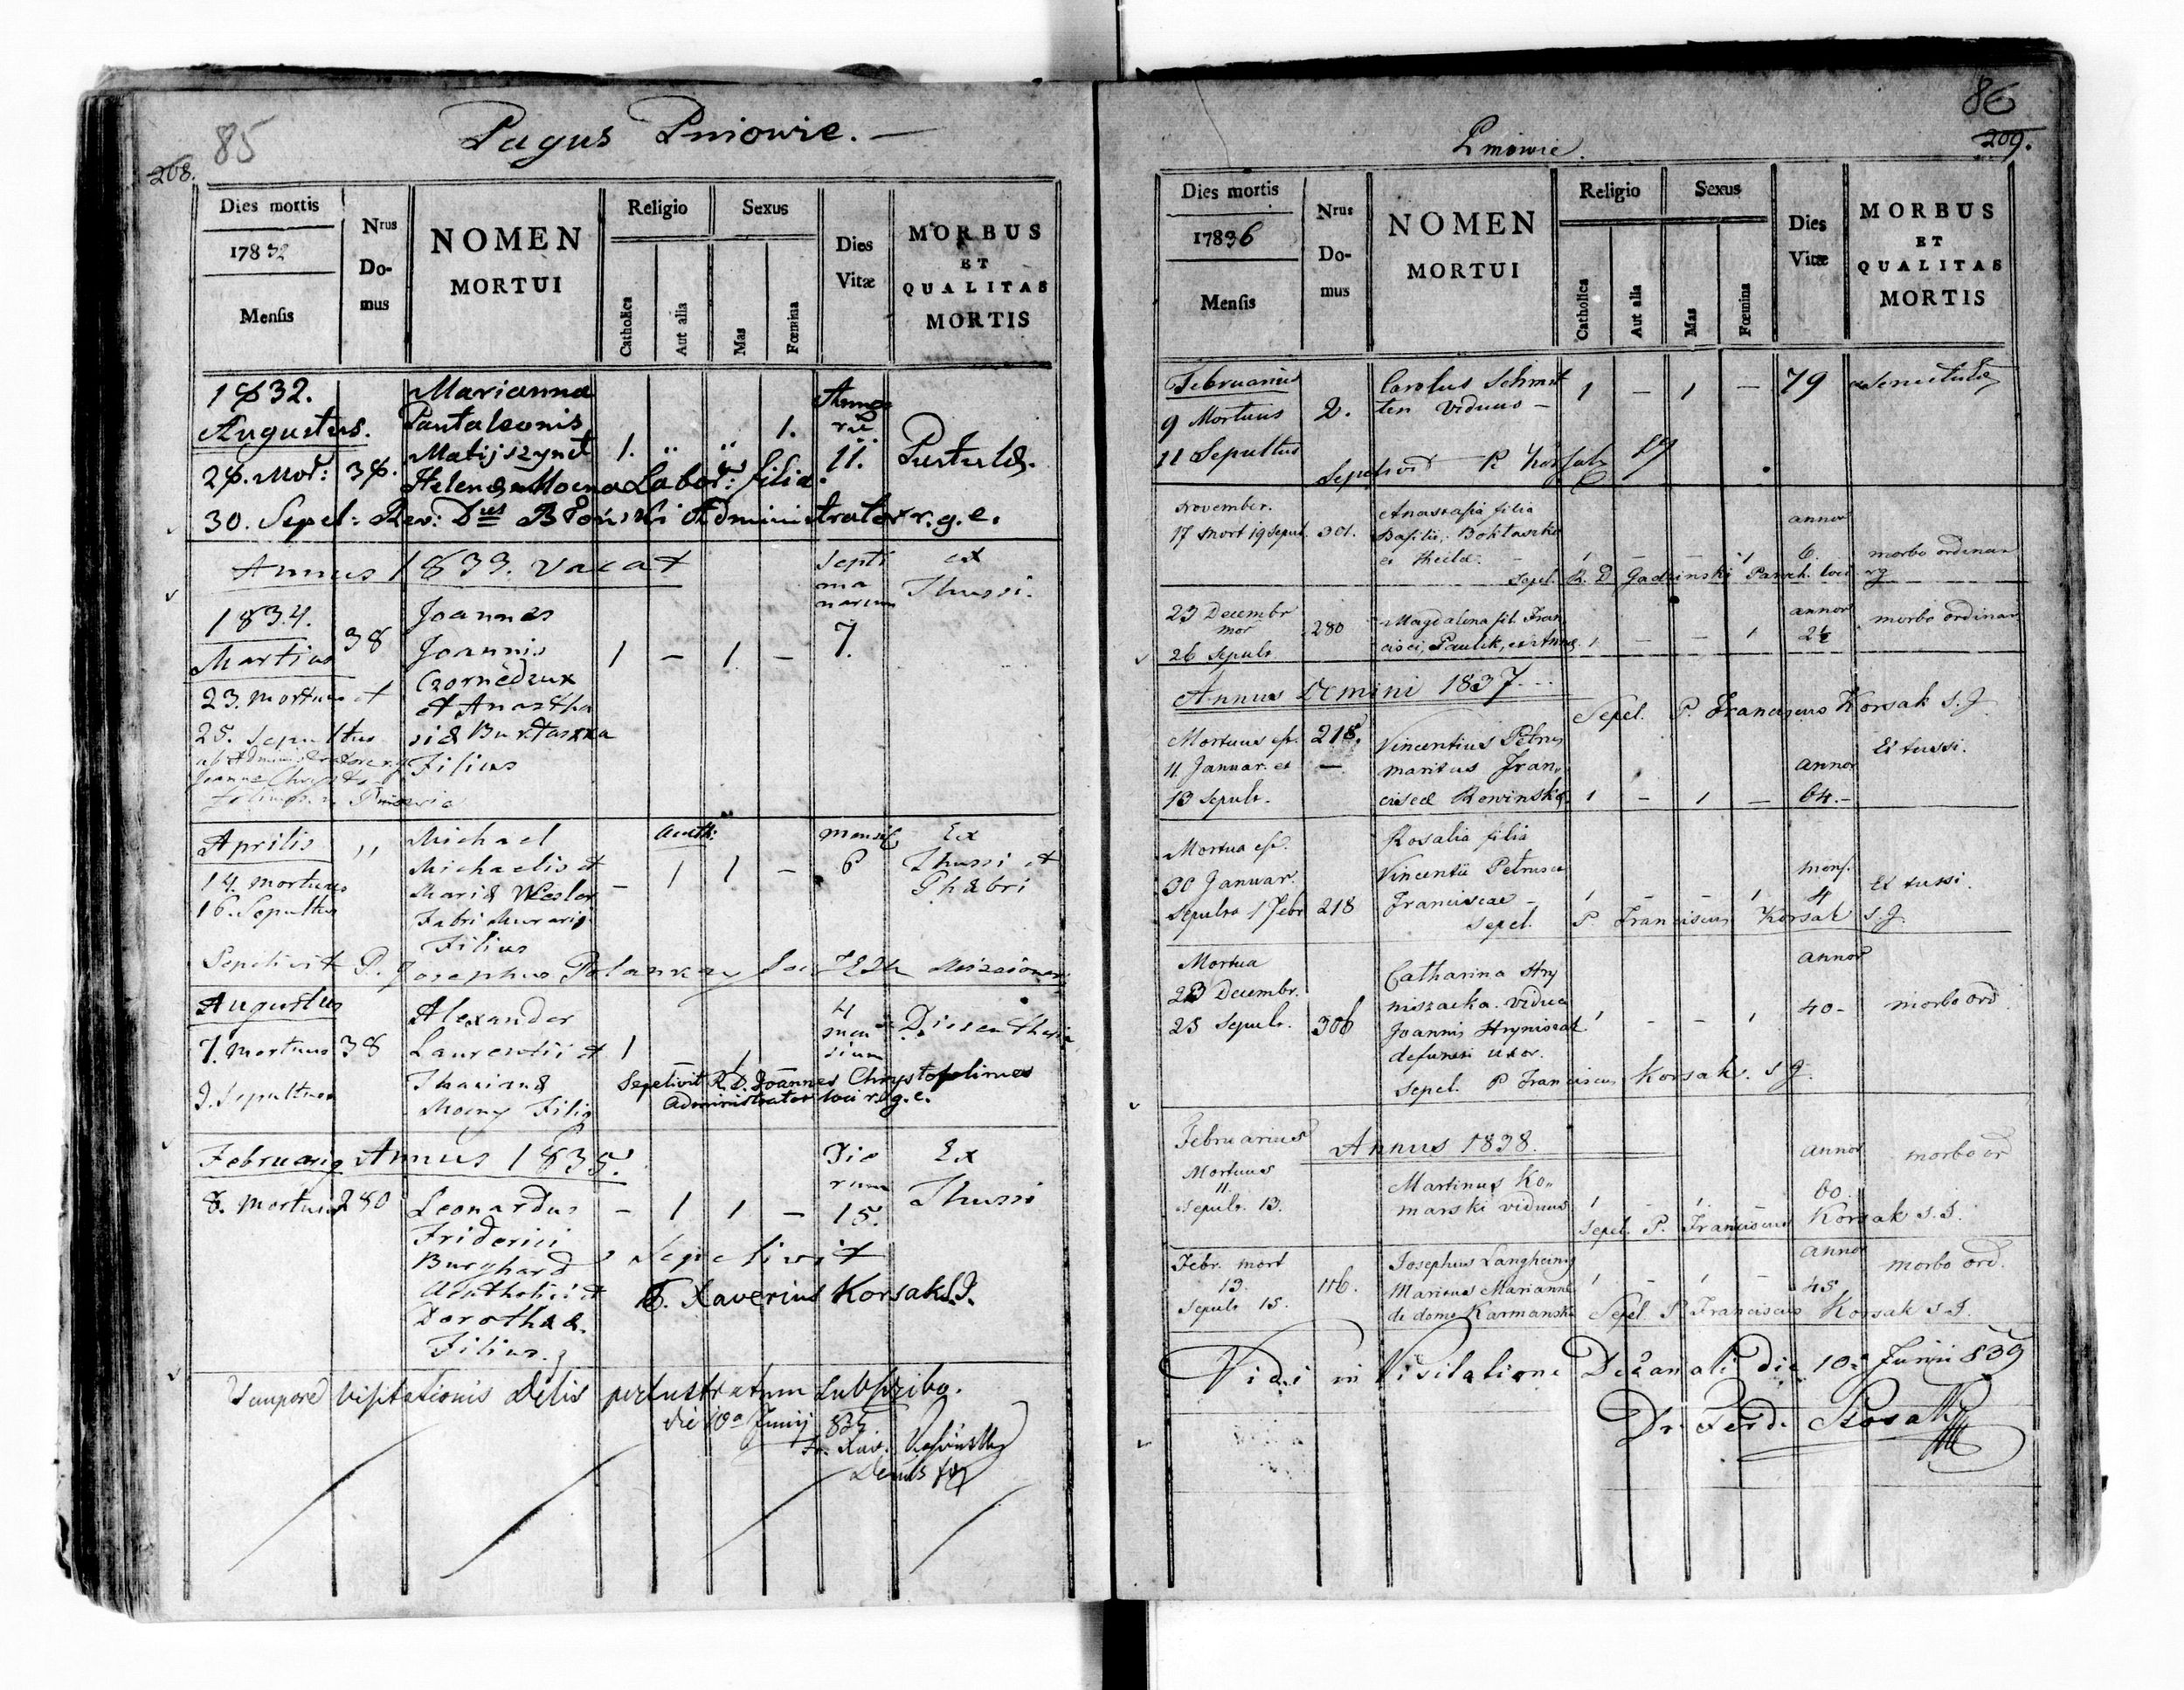 85
Pagus Pniowie. —
208.
Dies mortis
1832
Mensis
Nrus
Do-
mus
NOMEN
MORTUI
Religio
Catholica
Aut alia
Sexus
Mas
Fœmina
Dies
Vitæ
MORBUS
ET
QUALITAS
MORTIS
1832. Marianna
Augustus. Pantaleonis 1.
28. Mor: 38. Matijszynet 1. " " 11. Pustulæ.
Helenæ Moena Labor: filia.
30. Sepel: Rev: Dus Błoński Administrator r. g. c.
Annus 1833. vacat
Septi
ma
narum
ex
Thussi.
1834. Joannes 7.
Martius 38 Joannis 1 — 1. —
23. Mortuus et
et Anastha
25. Sepultus siæ
ab Administratore Filius
Joanne
Pniowie
Aprilis " Michael Auth: mensiū Ex
14. mortuus Michaelis et — 1 1 — 6 Thussi et
16. Sepultus Mariæ Wesler Phæbri
Fabri Murarij
Filius
Sepelivit P. Josephus Polanxay Soc JESU Missionari
Augustus Alexander 4
7. Mortuus 38 Laurentii et 1 men Dissentheria
sium
9. Sepultus Thecianæ
Moeny Filiq
Sepelivit R. D. Joannes Chrystofolimos
Administrator loci r. g. c.
Februariq Annus 1835. Die Ex
rum Thussi
8. Mortuus 280 Leonardus — 1 1 — 15.
Friderici
Burghard Sepelivit
Acutholici et P. Xaverius Korsak S.J.
Dorotheæ
Filius.
Tempore Visitationis Dělis perlustratum subscribo.
die 10a Junij 835
Fr. Xav.
86
Pniowie.
209.
Dies mortis
1836
Mensis
Nrus
Do-
mus
NOMEN
MORTUI
Religio
Catholica
Aut alia
Sexus
Mas
Fœmina
Dies
Vitæ
MORBUS
ET
QUALITAS
MORTIS
Februarius Carolus Schmit 1 — 1 — 79 Senectute
9 Mortuus 2. ten viduus —
11 Sepultus
Sepelivit P. Korsak SJ
November. Anastasia filia annor
17 Mort 19 Sepult. 301. Basilii 6. morbo ordinar
et Theclæ. 1 — — 1
Sepel. R. D. Gadzinski Paroch. loci
23 Decembr annor
mor 280 Magdalena fil. Fran 2½ morbo ordinar.
26 Sepult. cisci, Paulik, et Annæ. 1 — — 1
Annus Domini 1837.
Sepel. P. Franciscus Korsak S.J
Mortuus est 218. Vincentius Petrus Ex tussi.
11. Januar. et — maritus Fran„ annor
13 Sepult. ciscæ Rewinska 1 — 1 — 64.—
Mortua est Rosalia filia
30 Januar. Vincentii Petrus et mens.
Sepulta 1 Febr 218 Franciscae — 1 — — 1 4 Ex tussi.
Sepel. P Franciscus Korsak S.J.
Mortua Catharina Hry annor
23 Decembr. niszacka. vidua
25 Sepult. 306 Joannis Hryniszak 1 — — 1 40 — morbo ord
defuncti uxor.
Sepel. P Franciscus Korsak. S J.
Februarius Annus 1838. annor morbo or
Mortuus Martinus Ko„ 60.
11.
Sepult. 13. marski viduus 1 — 1. —
Sepel. P. Franciscus Korsak S.J.
Febr. mort Josephus Langheinz annor morbo ord.
13. 116. Maritus Mariannæ 1 — 1 — 45
Sepult 15. de domo Karmanska Sepel P Franciscus Korsak S J.
Vidi in Visitatione Decanali die 10ª Junii 839
Dr. Ferd.